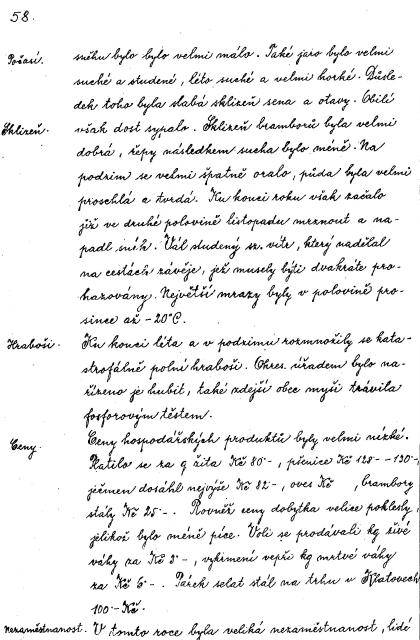 58.
Počasí. sněhu bylo bylo velmi málo. Také jaro bylo velmi
suché a studené, léto suché a velmi horké. Důsle-
dek toho byla slabá sklizeň sena a otavy. Obilí
Sklizeň. však dost sypalo. Sklizeň bramborů byla velmi
dobrá, řepy následkem sucha bylo méně. Na
podzim se velmi špatně oralo, půda byla velmi
proschlá a tvrdá. Ku konci roku však začalo
již ve druhé polovině listopadu mrznout a na-
padl sníh. Vál studený sz. vítr, který nadělal
na cestách závěje, jež musely býti dvakráte pro-
hazovány. Největší mrazy byly v polovině pro-
since až -20°C.
Hraboši. Ku konci léta a v podzimu rozmnožily se kata-
strofálně polní hraboši. Okres. úřadem bylo na-
řízeno je hubit, také zdejší obec myši trávila
fosforovým těstem.
Ceny. Ceny hospodářských produktů byly velmi nízké.
Platilo se za q žita Kč 80·-, pšenice Kč 128·- -130·-,
ječmen dosáhl nejvýše Kč 82·-, oves Kč , brambory
stály Kč 25·-. Rovněž ceny dobytka velice poklesly,
jelikož bylo méně píce. Voli se prodávali kg živé
váhy za Kč 3·-, vykrmení vepři kg mrtvé váhy
za Kč 6·-. Párek selat stál na trhu v Klatovech
100·- Kč.
Nezaměstnanost. V tomto roce byla veliká nezaměstnanost, lidé